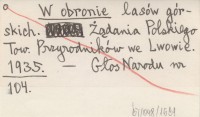 a
W obronie lasów gór-
skich. Żądania Polskiego
Tow. Przyrodników we Lwowie.
1935. — Głos Narodu nr
104.